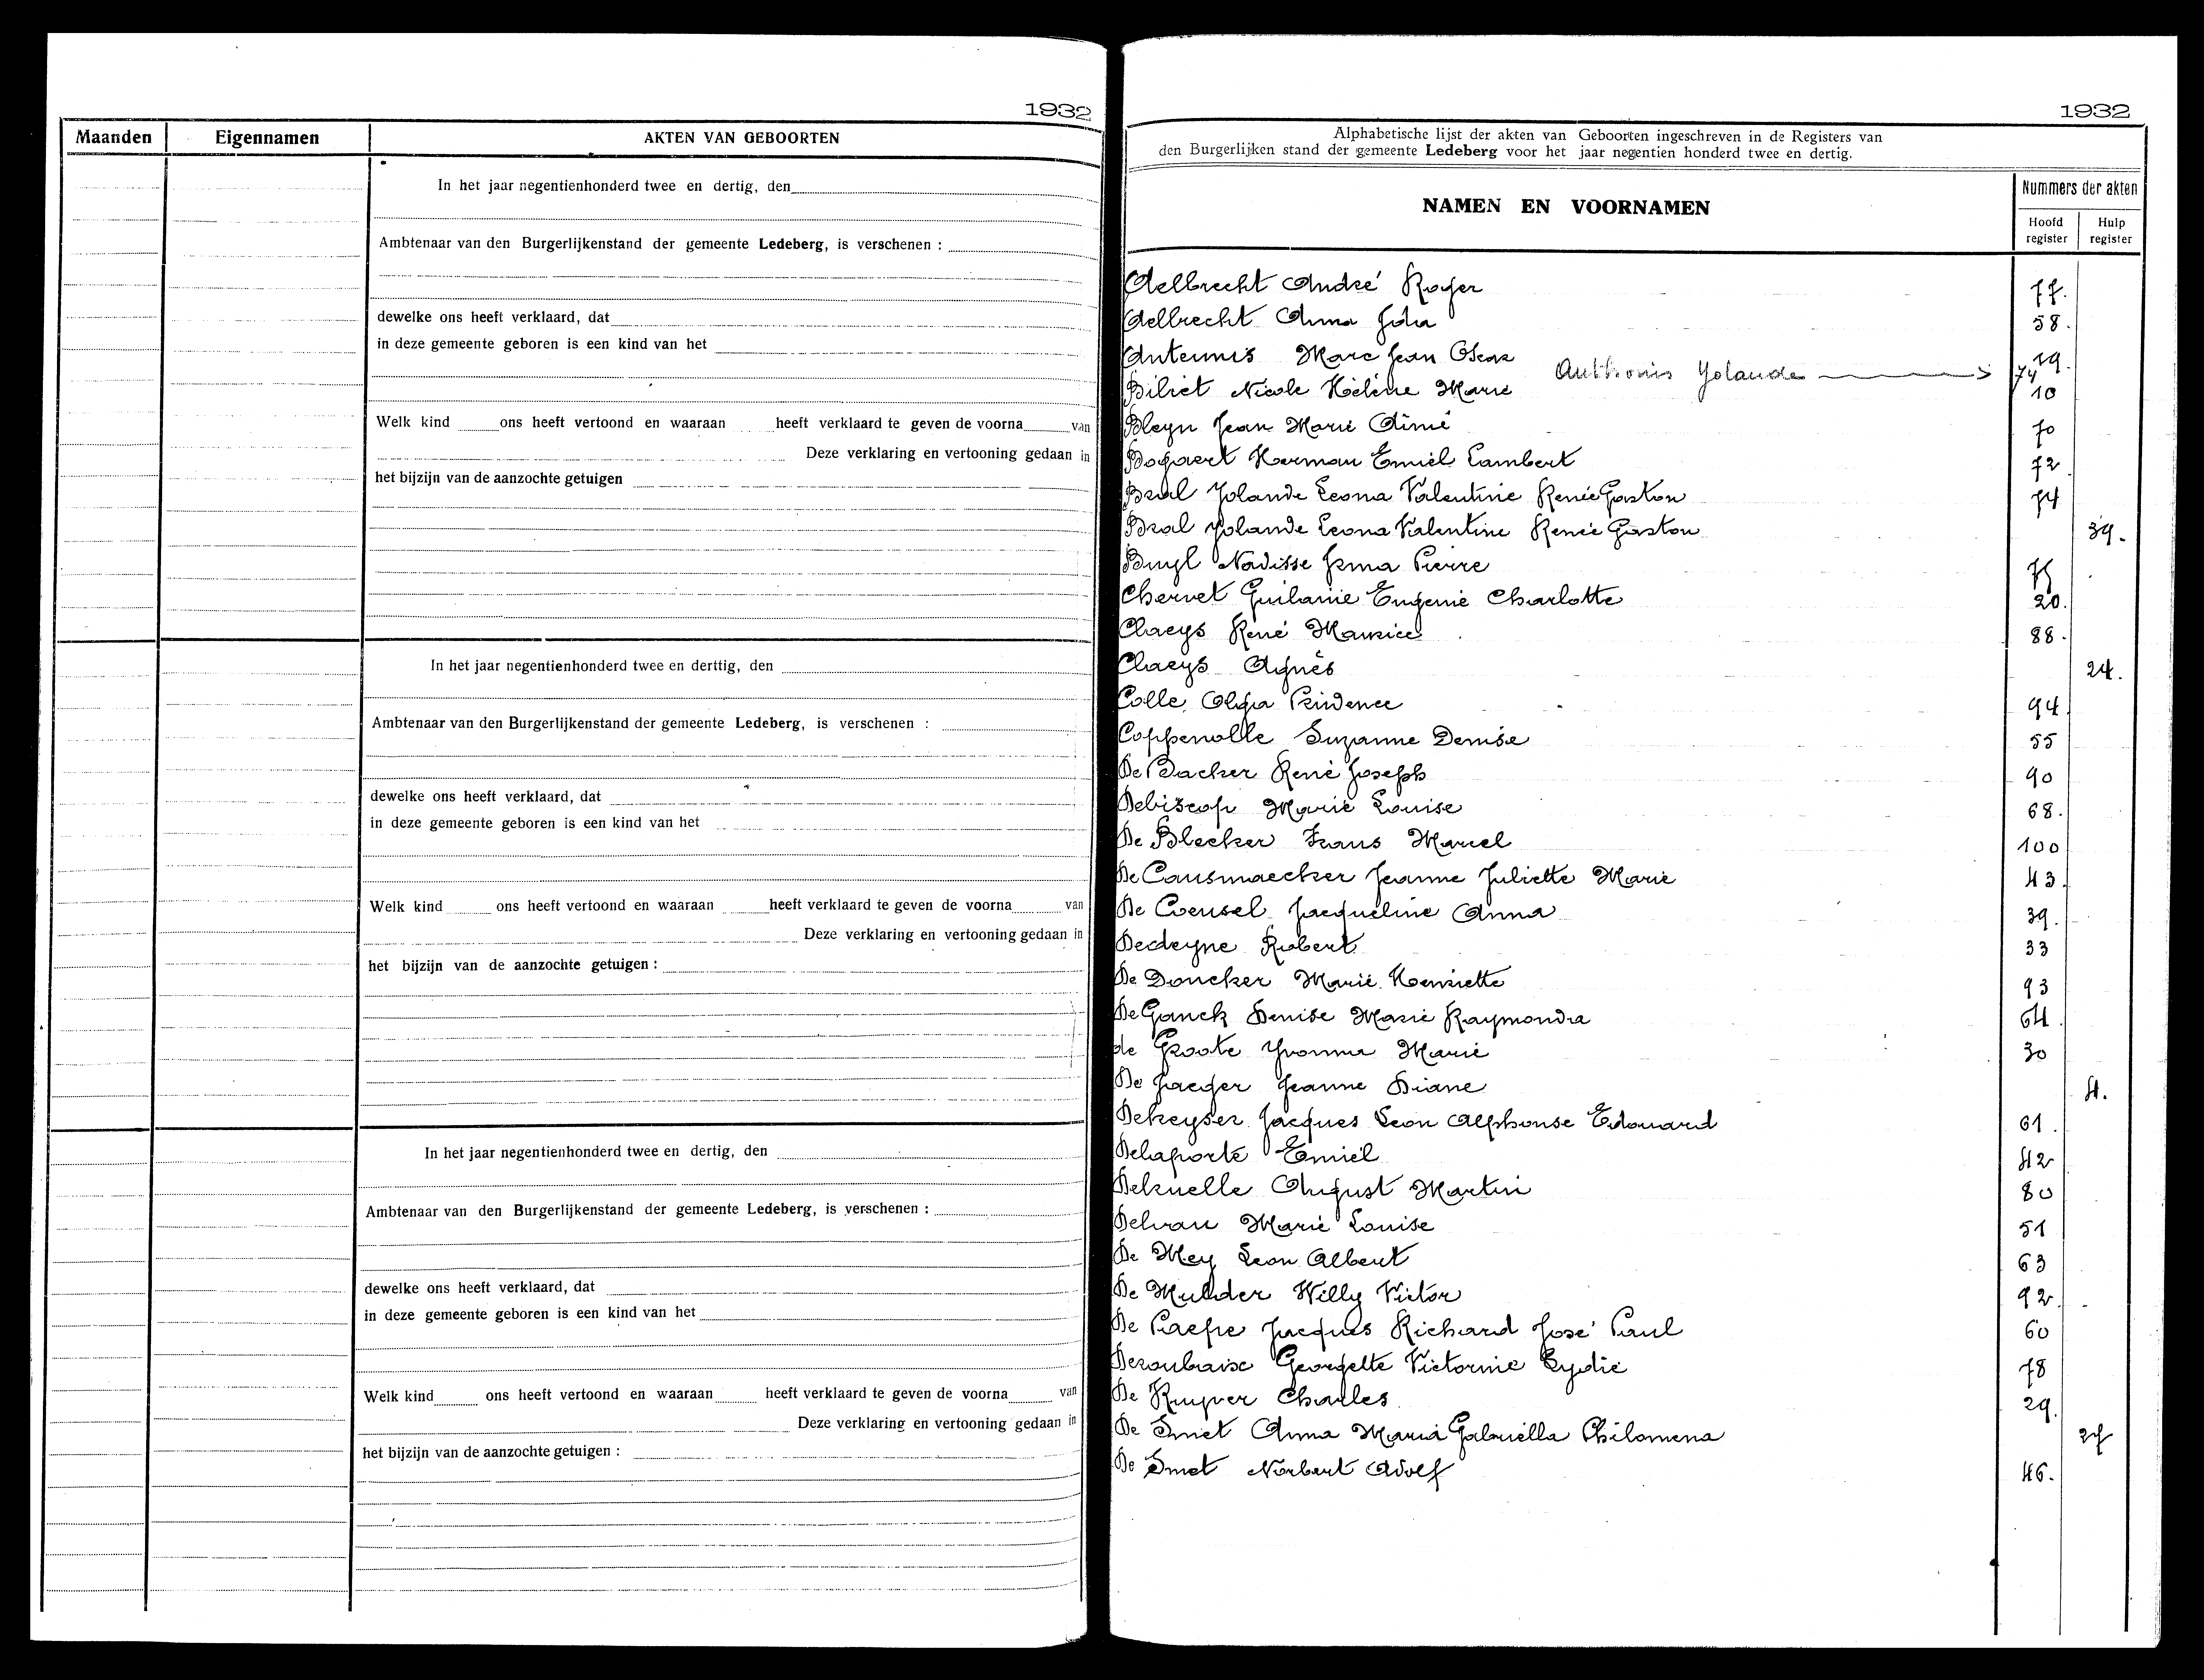 1932
Maanden Eigennamen AKTEN VAN GEBOORTEN
In het jaar negentienhonderd twee en dertig, den
Ambtenaar van den Burgerlijkenstand der gemeente Ledeberg, is verschenen :
dewelke ons heeft verklaard, dat
in deze gemeente geboren is een kind van het
Welk kind ons heeft vertoond en waaraan heeft verklaard te geven de voorna van
Deze verklaring en vertooning gedaan in
het bijzijn van de aanzochte getuigen
In het jaar negentienhonderd twee en derttig, den
Ambtenaar van den Burgerlijkenstand der gemeente Ledeberg, is verschenen :
dewelke ons heeft verklaard, dat
in deze gemeente geboren is een kind van het
Welk kind ons heeft vertoond en waaraan heeft verklaard te geven de voorna van
Deze verklaring en vertooning gedaan in
het bijzijn van de aanzochte getuigen :
In het jaar negentienhonderd twee en dertig, den
Ambtenaar van den Burgerlijkenstand der gemeente Ledeberg, is verschenen :
dewelke ons heeft verklaard, dat
in deze gemeente geboren is een kind van het
Welk kind ons heeft vertoond en waaraan heeft verklaard te geven de voorna van
Deze verklaring en vertooning gedaan in
het bijzijn van de aanzochte getuigen :
1932
Alphabetische lijst der akten van Geboorten ingeschreven in de Registers van
den Burgerlijken stand der gemeente Ledeberg voor het jaar negentien honderd twee en dertig.
NAMEN EN VOORNAMEN
Nummers der akten
Hoofd register
Hulp register
Aelbrecht André Roger 77.
Aelbrecht Anna Ida 58.
Anteunis Marc Jean Oscar 19.
Anthonis Yolande 74
Biliet Nicole Hélène Marie 10
Bleyn Jean Marie Aimé 70
Bogaert Herman Emiel Lambert 72
Bral Yolande Leona Valentine Renée Gaston 74
Bral Yolande Leona Valentine Renée Gaston 39.
Buyl Nadisse Irma Pierre
Chervet Guilanie Eugenie Charlotte 20.
Claeys René Maurice 88.
Claeys Agnès 24.
Colle Olga Prudence 94
Coppenolle Suzanne Denise 55
De Backer René Joseph 90
Debiscop Marie Louise 68.
De Bleeker Frans Marcel 100
De Causmaecker Jeanne Juliette Marie 43.
De Coensel Jacqueline Anna 39.
Dedeyne Robert 33
De Doncker Marie Henriette 93
De Ganck Denise Marie Raymonda 64.
de Groote Yvonna Marie 30
De Jaeger Jeanne Diane 4.
Dekeyser Jacques Leon Alphonse Edouard 61.
Delaporte Emiel 42
Delcuelle August Martin 80
Delvau Marie Louise 51
De Mey Leon Albert 63
De Mulder Willy Victor 92.
De Paepe Jacques Richard José Paul 60
Deroubaise Georgette Victorine Lydie 78
De Ruyver Charles 29.
De Smet Anna Maria Gabriella Philomena 27
De Smet Norbert Adolf 46.